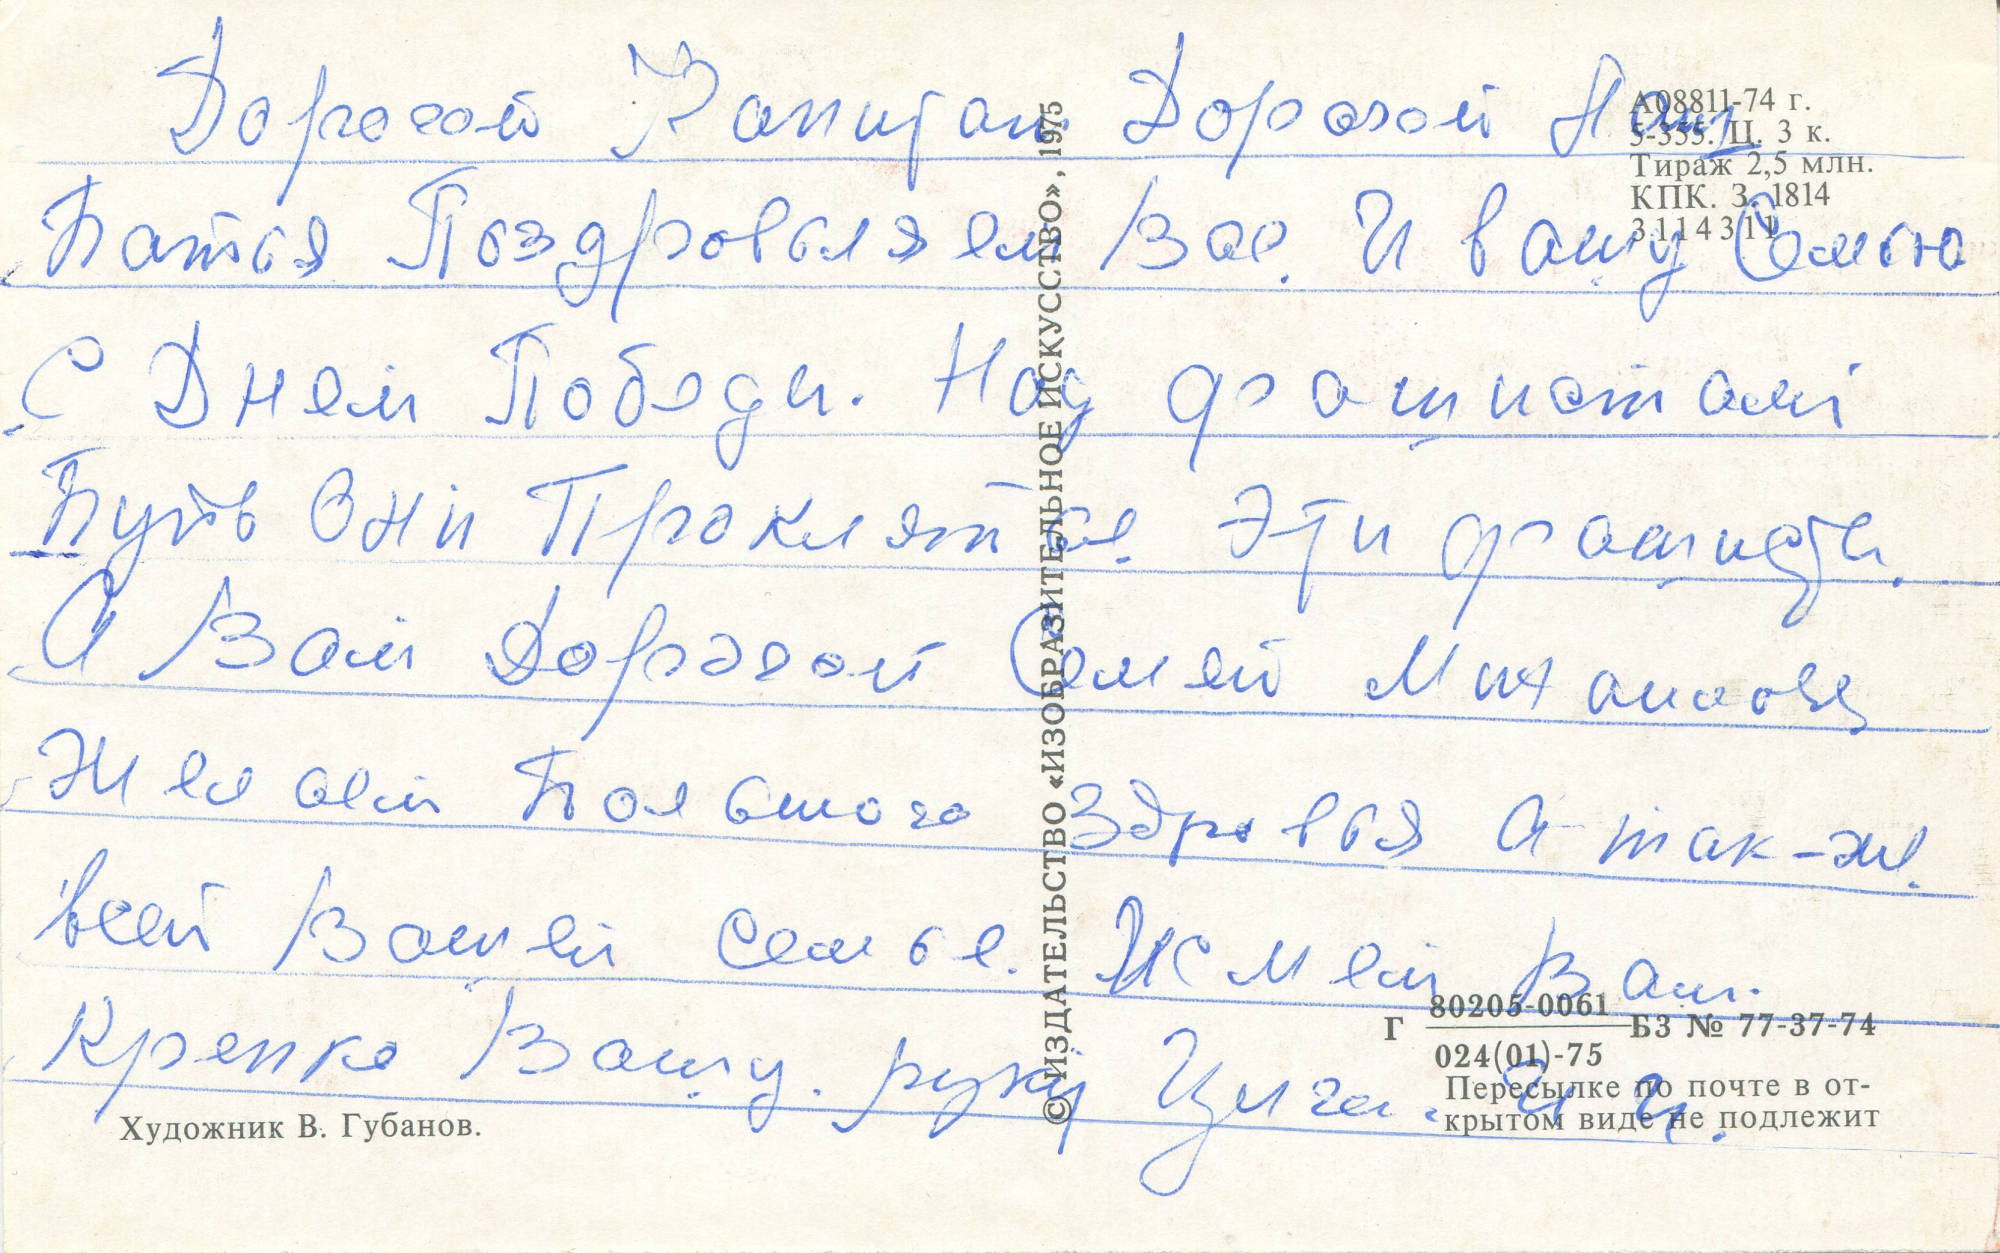 Дорогой Капитан Дорогой Наш
Батья Поздровьляем Вас. И вашу Семью
С Днем Победи. Над фашистами
Путь Они Проклятые Эти фашисты.
А Вам Дорогой Семей Михаилова
Желаем Польшого Здровья А-так-же.
всей Вашей семье. Жмем Вам.
Крепко Вашу. руку Цыга. И И.
А08811-74 г.
5-355. Ц. 3 к.
Тираж 2,5 млн.
КПК. З. 1814
3114311
© ИЗДАТЕЛЬСТВО «ИЗОБРАЗИТЕЛЬНОЕ ИСКУССТВО», 1975
Г 80205-0061 БЗ № 77-37-74
024(01)-75
Пересылке по почте в от-
крытом виде не подлежит
Художник В. Губанов.